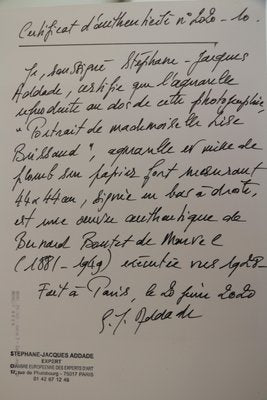 Certificat d'authenticité n° 2020-10.
Je, soussigné Stéphane-Jacques
Addade, certifie que l'aquarelle
reproduite au dos de cette photographie,
"Portrait de mademoiselle Lise
Brissaud", aquarelle et mine de
plomb sur papier fort mesurant
44 x 44 cm, signée en bas à droite,
est une œuvre authentique de
Bernard Boutet de Monvel
(1881-1949) exécutée vers 1928-
Fait à Paris, le 20 juin 2020
S. J. Addade
STÉPHANE-JACQUES ADDADE
EXPERT
CHAMBRE EUROPEENNE DES EXPERTS D'ART
rue de Phalsbourg - 75017 PARIS
01 42 67 12 49